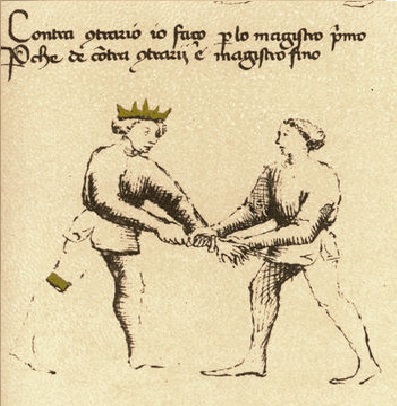 Contra ꝯtrario io faço ꝑ lo magistro p̃mo
Ꝑche de cõtra ꝯtrarij é magistro fino